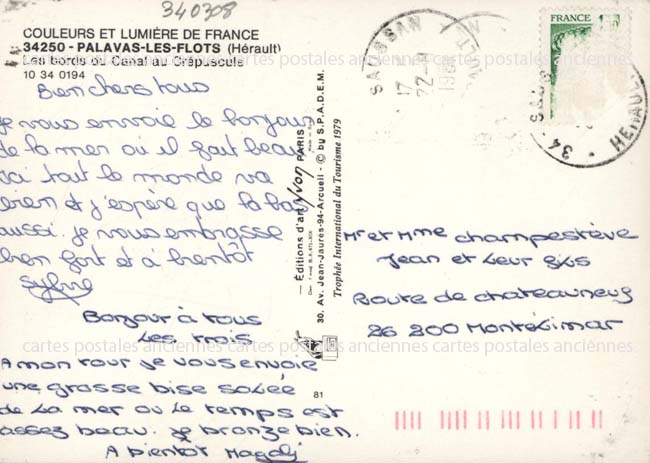 340308
COULEURS ET LUMIÈRE DE FRANCE
34250 - PALAVAS-LES-FLOTS (Hérault)
Les bords du Canal au Crépuscule
10 34 0194
Bien chers tous
je vous envoie le bonjour
de la mer où il fait beau
ici tout le monde va
bien et j'espère que là bas
aussi. je vous embrasse
bien fort et à bientôt
Sylvie
Bonjour à tous
Les trois
A mon tour je vous envoie
une grosse bise salée
de la mer ou le temps est
assez beau. je bronze bien.
A bientot Magali
— Éditions d'art Yvon PARIS
30. Av. Jean-Jaurès-94-Arcueil - © by S.P.A.D.E.M.
Trophée International du Tourisme 1979
81
FRANCE
17
22-
34
HERAULT
Mr et Mme champestève
Jean et Leur fils
Route de chateauneuf
26 200 Montélimar
cartes postales anciennes cartes postales anciennes cartes postales anciennes